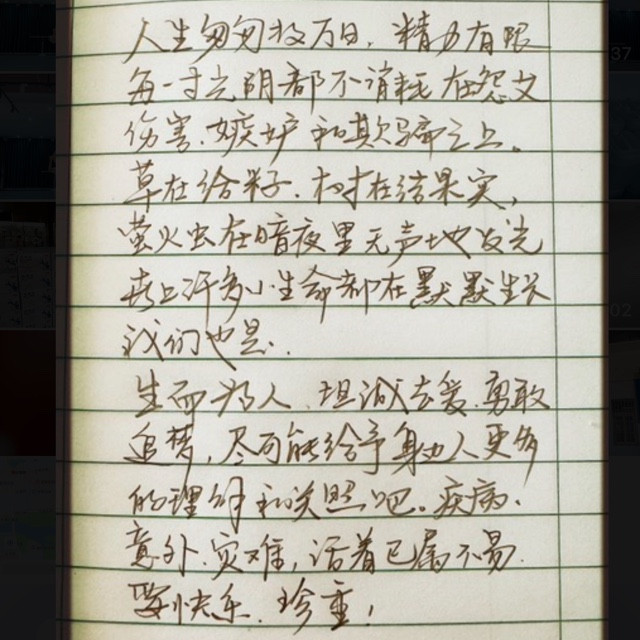 人生匆匆数万日，精力有限
每一寸光阴都不消耗在怨艾
伤害、嫉妒和欺骗之上。
草在结籽，树在结果实，
萤火虫在暗夜里无声地发光
世上许多小生命都在默默生长
我们也是。
生而为人，坦诚去爱，勇敢
追梦，尽可能给予身边人更多
的理解和关照吧。疾病、
意外、灾难，活着已属不易
要快乐，珍重！